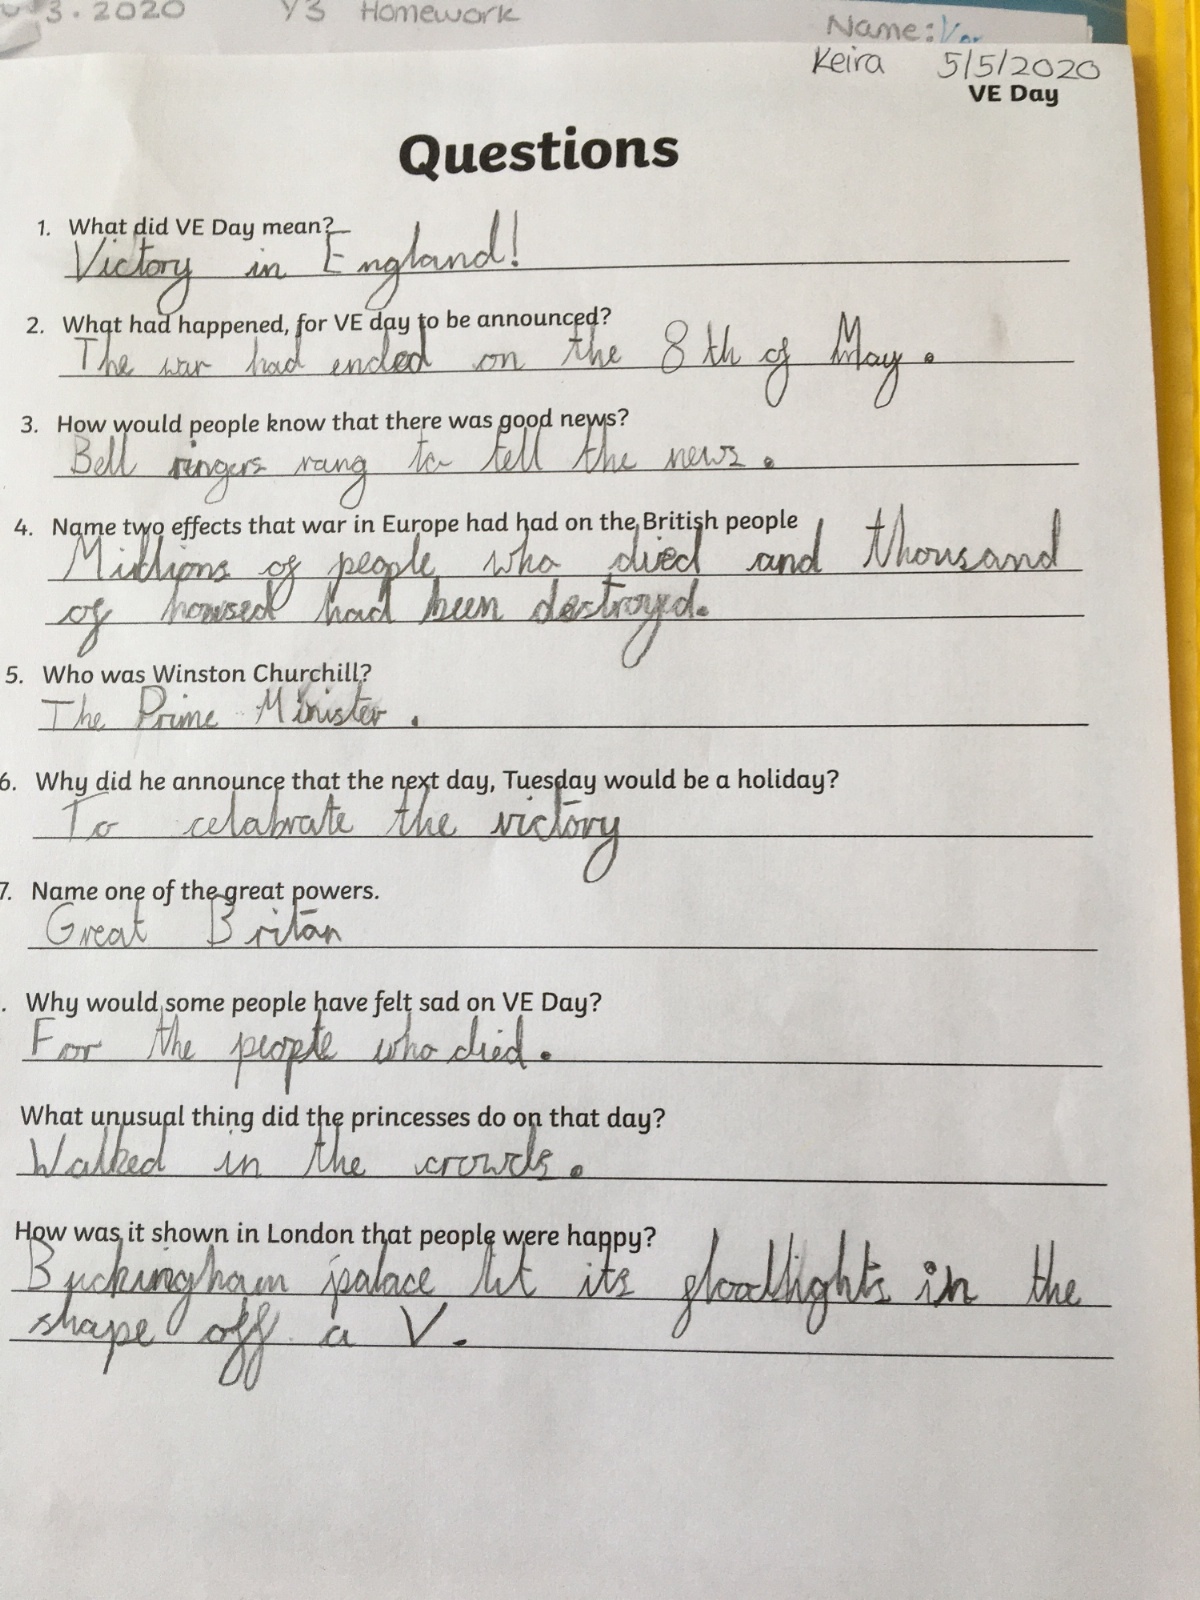 3.2020 Y3 Homework
Name:
Keira 5/5/2020
VE Day
Questions
1. What did VE Day mean?
Victory in England!
2. What had happened, for VE day to be announced?
The war had ended on the 8th of May.
3. How would people know that there was good news?
Bell ringers rang to tell the news.
4. Name two effects that war in Europe had had on the British people
Millions of people who died and thousand
of housed had been destroyed.
5. Who was Winston Churchill?
The Prime Minister.
6. Why did he announce that the next day, Tuesday would be a holiday?
To celabrate the victory
7. Name one of the great powers.
Great Britan
. Why would some people have felt sad on VE Day?
For the people who died.
What unusual thing did the princesses do on that day?
Walked in the crowds.
How was it shown in London that people were happy?
Buckingham palace lit its floodlights in the
shape off a V.